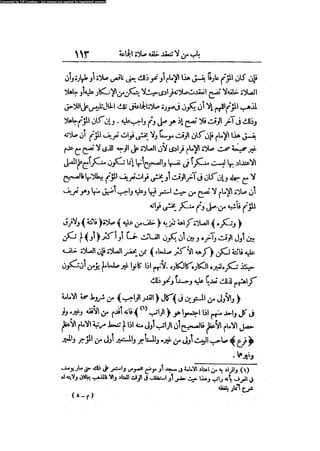 Converted by Tiff Combine - (no stamps are applied by registered version)
باب من لا تنعقد خلفه صلاة الجماعة ١١٣
فإن كان المؤتم عارفا بفسق هذا الإمام أو نحو ذلك يعني ناقص صلاة أو طهارة وأن
الصلاة خلفه لا تصح انعقدت صلاته فرادى حيث لا يتمكن من الإنكار عليه أو جاهلا
لمذهب المؤتم اللهم إلا أن يكون في صورة صلاة الجماعة في تلك الحال تلبيس على اللاحق
وذلك في آخر الوقت فلا تصح إذ هو على واجب عليه. وإن كان المؤتم جاهلا
بفسق هذا الإمام فإن كان الوقت موسعا ولا يخشى فوات تعريف المؤتم أن صلاته
غير صحيحة صحت صلاة الإمام فرادى لأن الصلاة على الوجه الذي لا تصح مع عدم
الاعتداد بها ليست منكرا في نفسها والصحيح أنها إنما تكون منكرا مع علم المصلي
لا مع جهله وإن كان في آخر الوقت أو يخشى فوات تعريف المؤتم ببطلانها فالصحيح
أن صلاة الإمام لا تصح من حيث استمر فيها وعليه واجب أضيق منها وهو تعريف
المؤتم فأشبه من صلى وثم منكر يخشى فواته
﴿وتكره﴾ الصلاة كراهة تنزيه ﴿خلف من عليه﴾ صلاة ﴿فائتة﴾ ولا فرق
بين أول الوقت وآخره وبين أن يكون الفائت خمسا أو أكثر ﴿أو﴾ لم تكن
عليه فائتة لكن ﴿كرهه الأكثر صلحاء﴾ ممن يحضر الصلاة فإن الصلاة خلفه
حينئذ تكره لغير الكاره كالكاره. لأنهم إذا كانوا غير صلحاء لم يؤمن أن تكون
كراهتهم لذلك تعديا عليه وحسدا ونحو ذلك
﴿والأولى من المستويين في﴾ كمال ﴿القدر الواجب﴾ من شروط صحة الإمامة
في كل واحد منهم إذا اجتمعوا هو ﴿الراتب﴾ (١) فإنه أقدم من الأفقه وغيره ولو
حصل الإمام الأعظم فالصحيح أن الراتب أولى منه إذا لم تنحط مرتبة الإمام الأعظم
﴿فرع﴾ صاحب البيت أولى من غيره والمستأجر والمستعير أولى من المؤجر والمعير
وغيرهما.
(١) والمراد به من اعتاد الإمامة في مسجد أو موضع مخصوص واستمر على ذلك حتى صار يوصف
في العرف بأنه راتب وهذا حيث حضر أو استخلف في الوقت المعتاد وإلا فالمذهب بطلان ولايته اهـ
شرح أثمار بلفظه
(م - ٨)